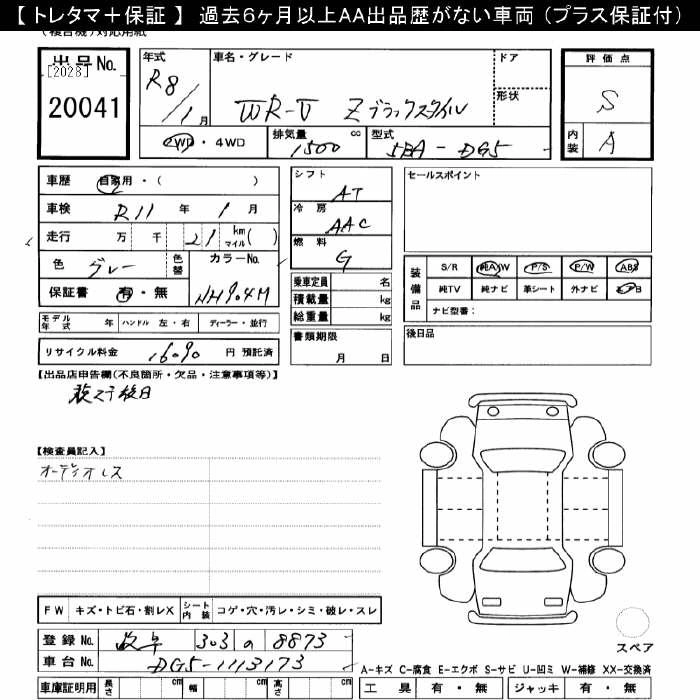 【 トレタマ＋保証 】 過去6ヶ月以上AA出品歴がない車両（プラス保証付）
（複合機）対応用紙
出品No.
[2028]
20041
年式
R8/1月
車名・グレード
WR-V Zブラックスタイル
ドア
形状
2WD・4WD
排気量
1500 cc
型式
5BA-DG5
評価点
S
内装
A
車歴 自家用・( )
車検 R11年 1月
走行 万 千 21 km マイル ( )
色 グレー
色替
カラーNo.
NH904M
保証書 有・無
モデル年式 年 ハンドル 左・右 ディーラー・並行
リサイクル料金 16090 円 預託済
シフト
AT
冷房
AAC
燃料
G
乗車定員 名
積載量 kg
総重量 kg
書類期限
月 日
セールスポイント
装備品
S/R 純A/W P/S P/W ABS
純TV 純ナビ 革シート 外ナビ エアB
ナビ型番：
後日品
【出品店申告欄(不良箇所・欠品・注意事項等)】
取ステ後日
【検査員記入】
オーディオレス
FW キズ・トビ石・割レX シート内装 コゲ・穴・汚レ・シミ・破レ・スレ
登録No. 303 の 8873
車台No. DG5-1113173
車庫証明用 長さ cm 幅 cm 高さ cm
スペア
A-キズ C-腐食 E-エクボ S-サビ U-凹ミ W-補修 XX-交換済
工具 有・無 ジャッキ 有・無